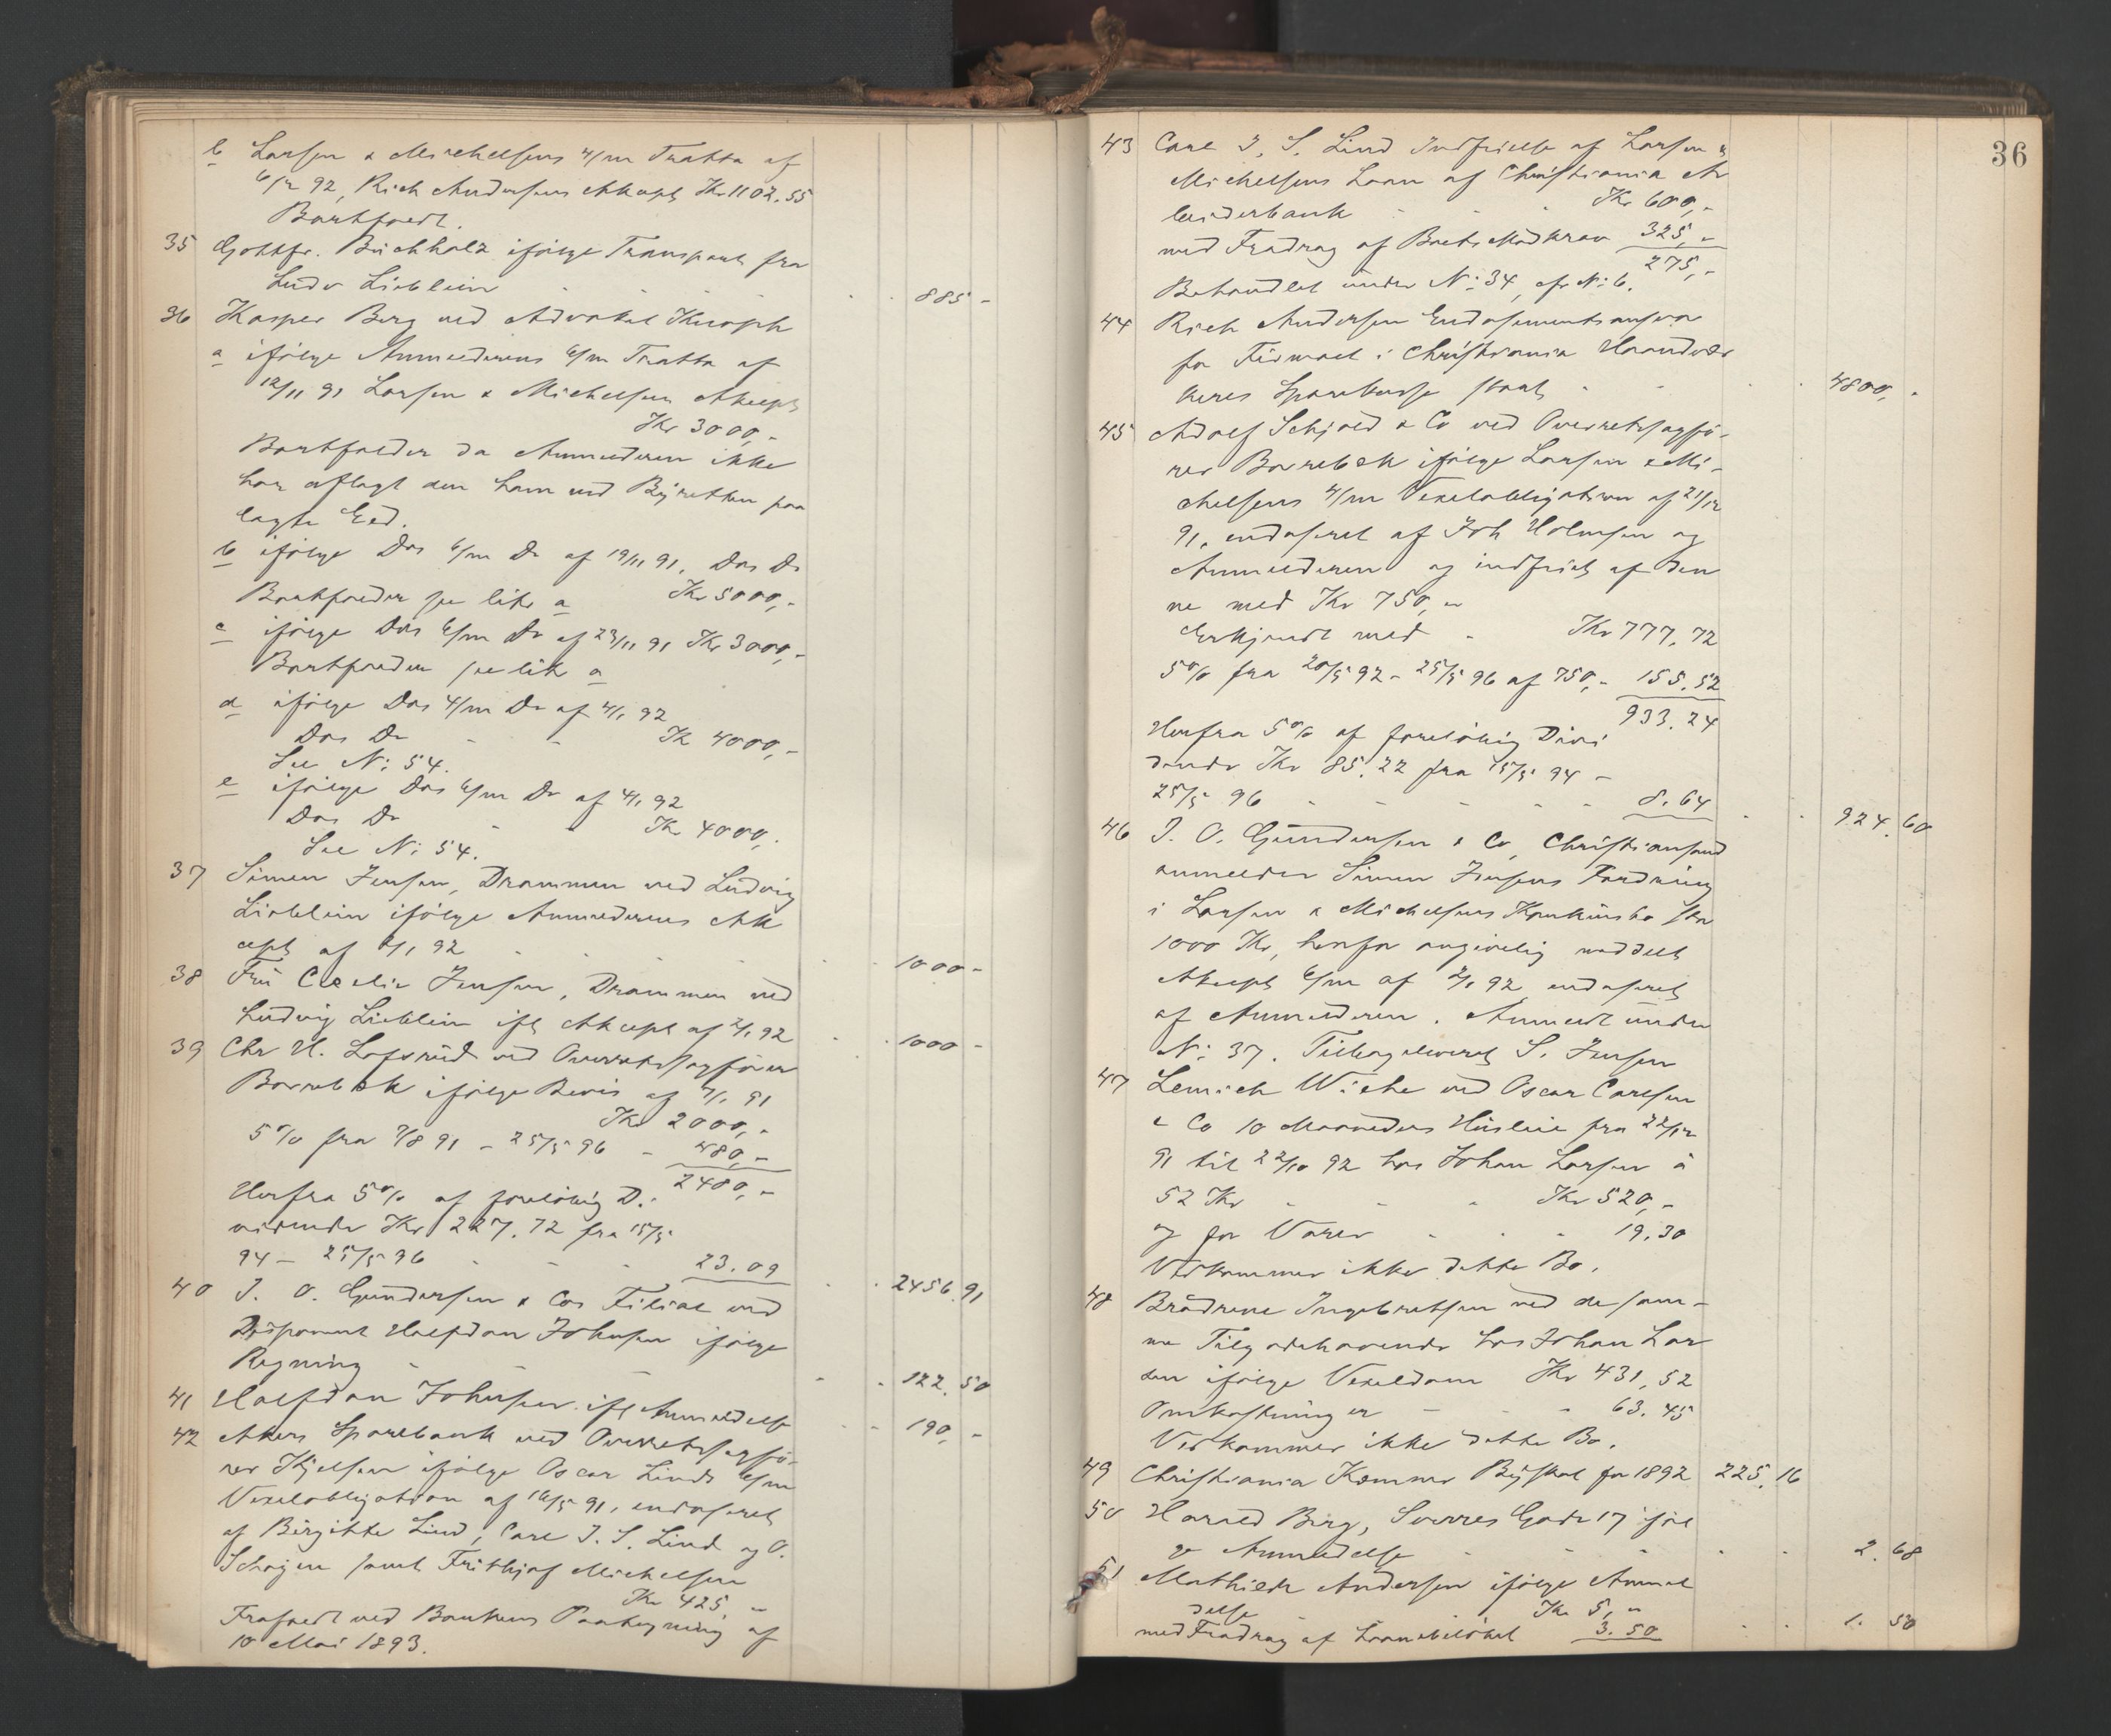 b Larsen & Michelsens 4/m Tratta af
6/2 92, Rich Andersens Akcept Kr 1102.55
Bortfaldt.
35 Gottfr. Buchholz ifølge Transport fra
Ludv Lieblein 885 -
36 Kasper Berg ved Advokat Knoph
a ifølge Anmelderens 6/m Tratta af
12/11 91 Larsen & Michelsen Akcept
Kr 3000,-
Bortfalder da Anmelderen ikke
har aflagt den ham ved Byretten paa
lagte Eed.
b ifølge Dos 6/m Do af 19/11 91, Dos Do
Kr 5000,-
Bortfalder se litr a
c ifølge Dos 6/m Do af 23/11 91 Kr 3000,-
Bortfalder se litr a
d ifølge Dos 4/m Do af 4/1 92
Dos Do - - Kr 4000,-
See N: 54.
e ifølge Dos 6/m Do af 4/1 92
Dos Do - Kr 4000,-
See N: 54.
37 Simen Jensen, Drammen ved Ludvig
Lieblein ifølge Anmelderens Ak
cept af 2/1 92 1000 -
38 Fru Cecilie Jensen, Drammen ved
Ludvig Lieblein ifl Akcept af 2/1 92 1000 -
39 Chr H. Lofsrud ved Overretssagfører
Borrebæk ifølge Bevis af 7/1 91
Kr 2000,-
5% fra 7/8 91 - 25/5 96 - 480,-
2480,-
Herfra 5% af foreløbig Di-
vidende Kr 227.72 fra 15/5
94 - 25/5 96 23.09 2456.91
40 J. O. Gundersen & Cos Filial ved
Disponent Halfdan Johnsen ifølge
Regning 122.50
41 Halfdan Johnsen ifl Anmeldelse 190,-
42 Akers Sparebank ved Overretssagfø-
rer Kjelsen ifølge Oscar Linds 6/m
Vexelobligation af 16/5 91, endosseret
af Birgitte Lind, Carl J. S. Lind og O.
Schøyen samt Frithjof Michelsen
Kr 425,-
Frafaldt ved Bankens Paategning af
10 Mai 1893.
36
43 Carl J. S. Lind Indfrielse af Larsen &
Michelsens Laan af Christiania Ar
beiderbank - - Kr 600,-
med Fradrag af Boets Modkrav 325,-
275,-
Behandlet under N: 34, cfr N: 6.
44 Rich Andersen Endossementsansvar
for Firmaet i Christiania Haandvær
keres Sparekasse stort 4800,-
45 Adolf Schjold & Co ved Overretssagfø-
rer Borrebæk ifølge Larsen & Mi-
chelsens 4/m Vexelobligation af 21/12
91, endosseret af Joh Holmsen og
Anmelderen og indfriet af den
ne med Kr 750,-
Erkjendt med - Kr 777.72
5% fra 20/5 92 - 25/5 96 af 750,- 155.52
933.24
Herfra 5% af foreløbig Divi
dende Kr 85.22 fra 15/5 94 -
25/5 96 8.64 924.60
46 J. O. Gundersen & Co, Christiansand
anmelder Simen Jensens Fordring
i Larsen & Michelsens Konkursbo stor
1000 Kr, herfor angivelig meddelt
Akcept 6/m af 2/1 92 endosseret
af Anmelderen. Anmeldt under
N: 37. Tilbageleveret S. Jensen
47 Lemich Wiche ved Oscar Carlsen
& Co 10 Maaneders Husleie fra 22/12
91 til 22/10 92 hos Johan Larsen à
52 Kr - - Kr 520,-
og for Varer - - 19.30
Vedkommer ikke dette Bo.
48 Brødrene Ingebretsen ved de sam-
me Tilgodehavende hos Johan Lar
sen ifølge Vexeldom Kr 431,52
Omkostninger - - 63.45
Vedkommer ikke dette Bo.
49 Christiania Kæmner Byskat for 1892 225.16
50 Harald Berg, Sverres Gade 17 iføl
ge Anmeldelse 2.68
51 Mathilde Andersen ifølge Anmel
delse Kr 5,-
med Fradrag af Laanebeløbet 3.50 1.50